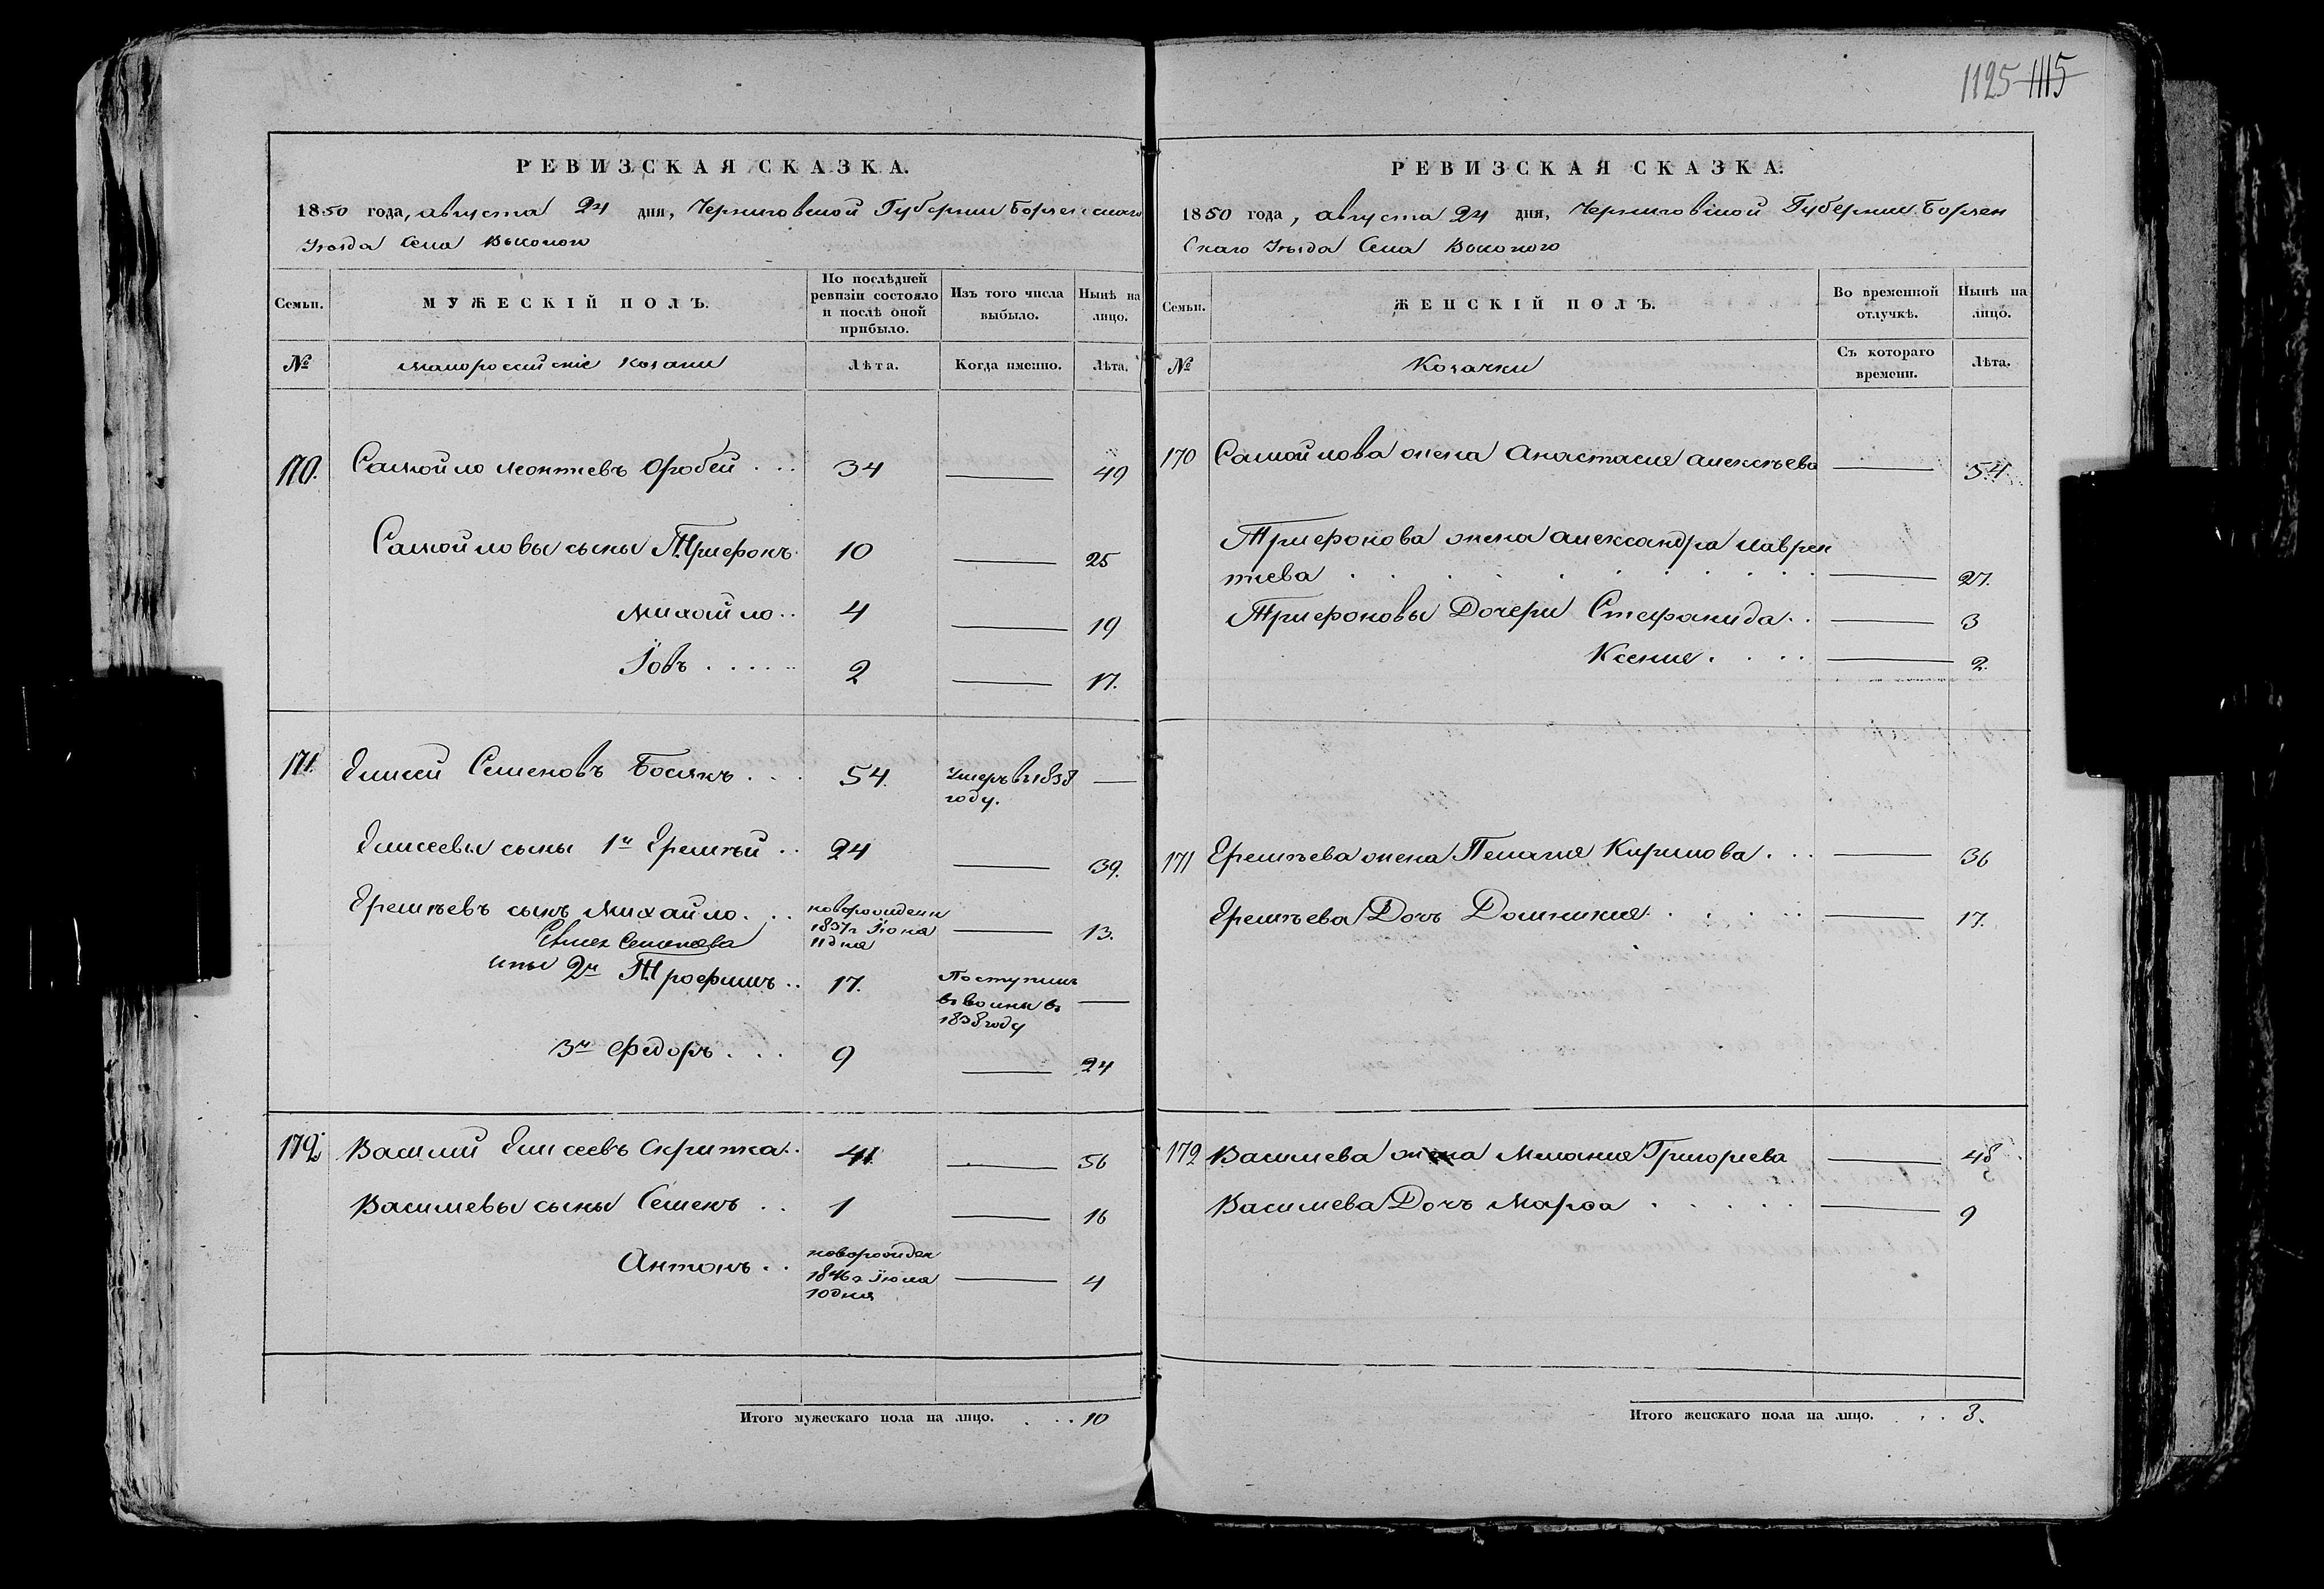 1125 1115
РЕВИЗСКАЯ СКАЗКА.
1850 года, августа 24 дня, Черниговской Губернии Борзенскаго
Уѣзда Села Высокого
Семьи.
МУЖЕСКІЙ ПОЛЪ.
По послѣдней ревизіи состояло и послѣ оной прибыло.
Изъ того числа выбыло.
Нынѣ на лицо.
№
малороссийские козаки
Лѣта.
Когда именно.
Лѣта.
170. Самойло леонтиевъ Оробей 34 — 49
Самойловы сыны Трифонъ 10 — 25
михайло 4 — 19
Іовъ 2 — 17.
171. Елисей Семеновъ Босякъ 54. Умеръ в 1838 —
году.
Елисеевы сыны 1й Еремѣй 24 — 39.
Еремѣевъ сынъ михайло новорожденн
1837г Іюня — 13.
11 дня
2й Трофимъ 17. Поступилъ
въ воины въ —
1838 году
3й Федоръ 9 — 24
172 Василий Елисеевъ скрипка 41. — 56
Василиевы сыны Семенъ 1 — 16
Антонъ новорожден
1846г Іюля — 4
10 дня
Итого мужескаго пола на лицо. 10
РЕВИЗСКАЯ СКАЗКА.
1850 года, августа 24 дня, Черниговской Губернии Борзен
Скаго Уѣзда Села Высокого
Семьи.
ЖЕНСКІЙ ПОЛЪ.
Во временной отлучкѣ.
Нынѣ на лицо.
№
Козачки
Съ котораго времени.
Лѣта.
170 Самойлова жена Анастасия алексѣева — 54.
Трифонова жена александра лаврен
тиева — 27.
Трифоновы Дочери Стефанида — 3
Ксения — 2.
171 Еремѣева жена Пелагия Кирилова — 36
Еремѣева Дочь Домникия — 17.
172 Василиева жена Мелания Григориева — 48
Василиева Дочь Марѳа — 9
Итого женскаго пола на лицо. 3.